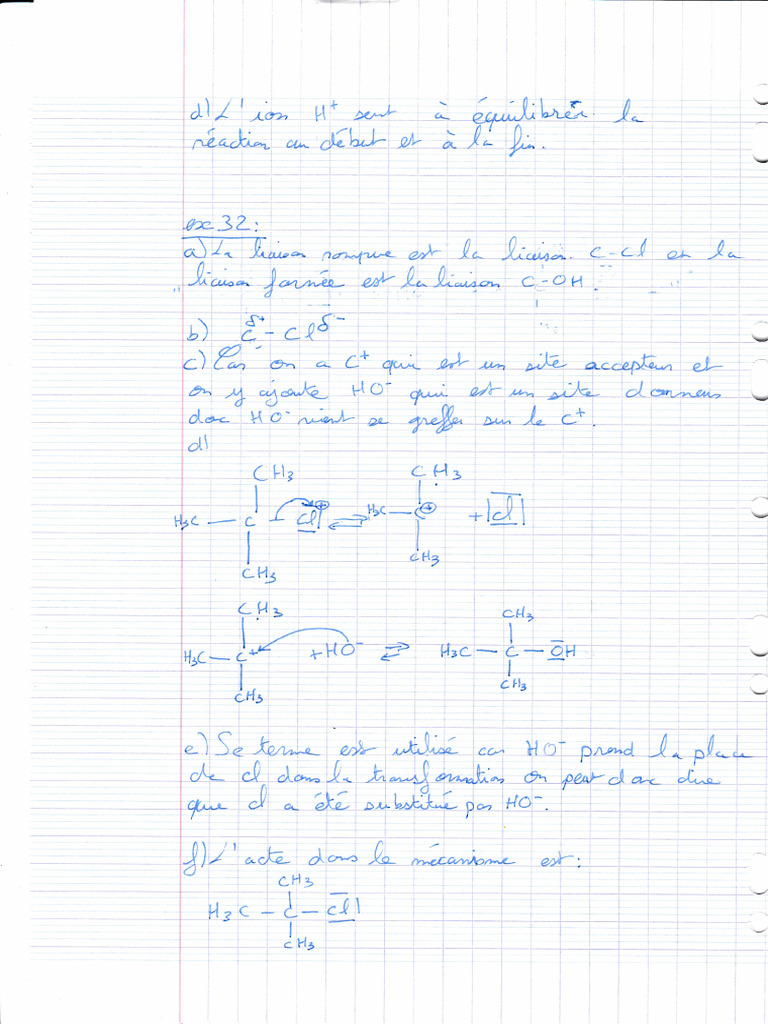 d) L'ion H⁺ sert à équilibrer la
réaction au début et à la fin.
ex 32:
a) La liaison rompue est la liaison C-Cl et la
liaison formée est la liaison C-OH.
b) C^δ+ - Cl^δ-
c) Car on a C⁺ qui est un site accepteur et
on y ajoute HO⁻ qui est un site donneur
donc HO⁻ vient se greffer sur le C⁺.
d)
CH3 CH3
H3C — C — Cl ⊕ ⇌ H3C — C ⊕ + Cl
CH3 CH3
CH3 CH3
H3C — C⁺ + HO⁻ ⇌ H3C — C — OH
CH3 CH3
e) Se terme est utilisé car HO⁻ prend la place
de cl dans la transformation on peut donc dire
que cl a été substitué par HO⁻.
f) L'acte dans le mécanisme est:
CH3
H3C — C — Cl
CH3